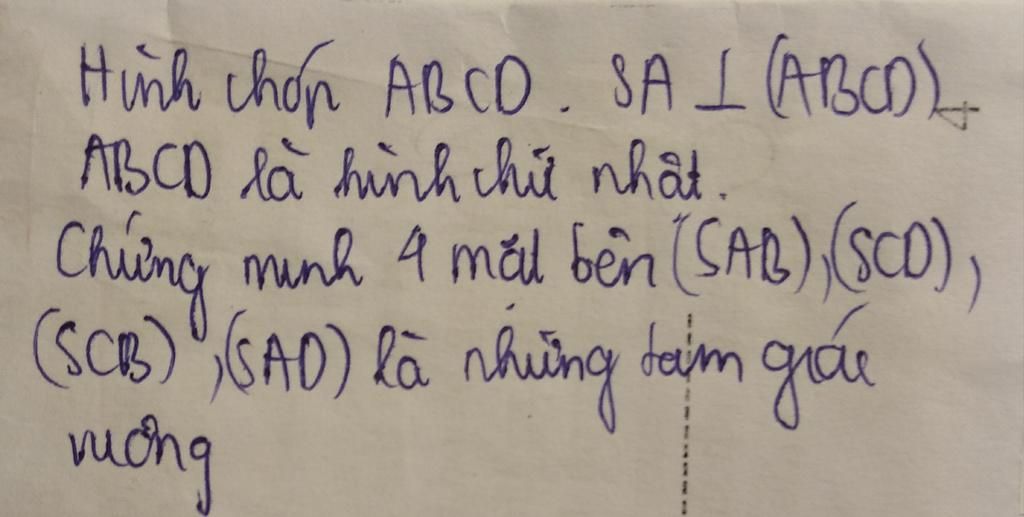 Hình chóp ABCD. SA ⊥ (ABCD)
ABCD là hình chữ nhật.
Chứng minh 4 mặt bên (SAB), (SCD),
(SCB), (SAD) là những tam giác
vuông